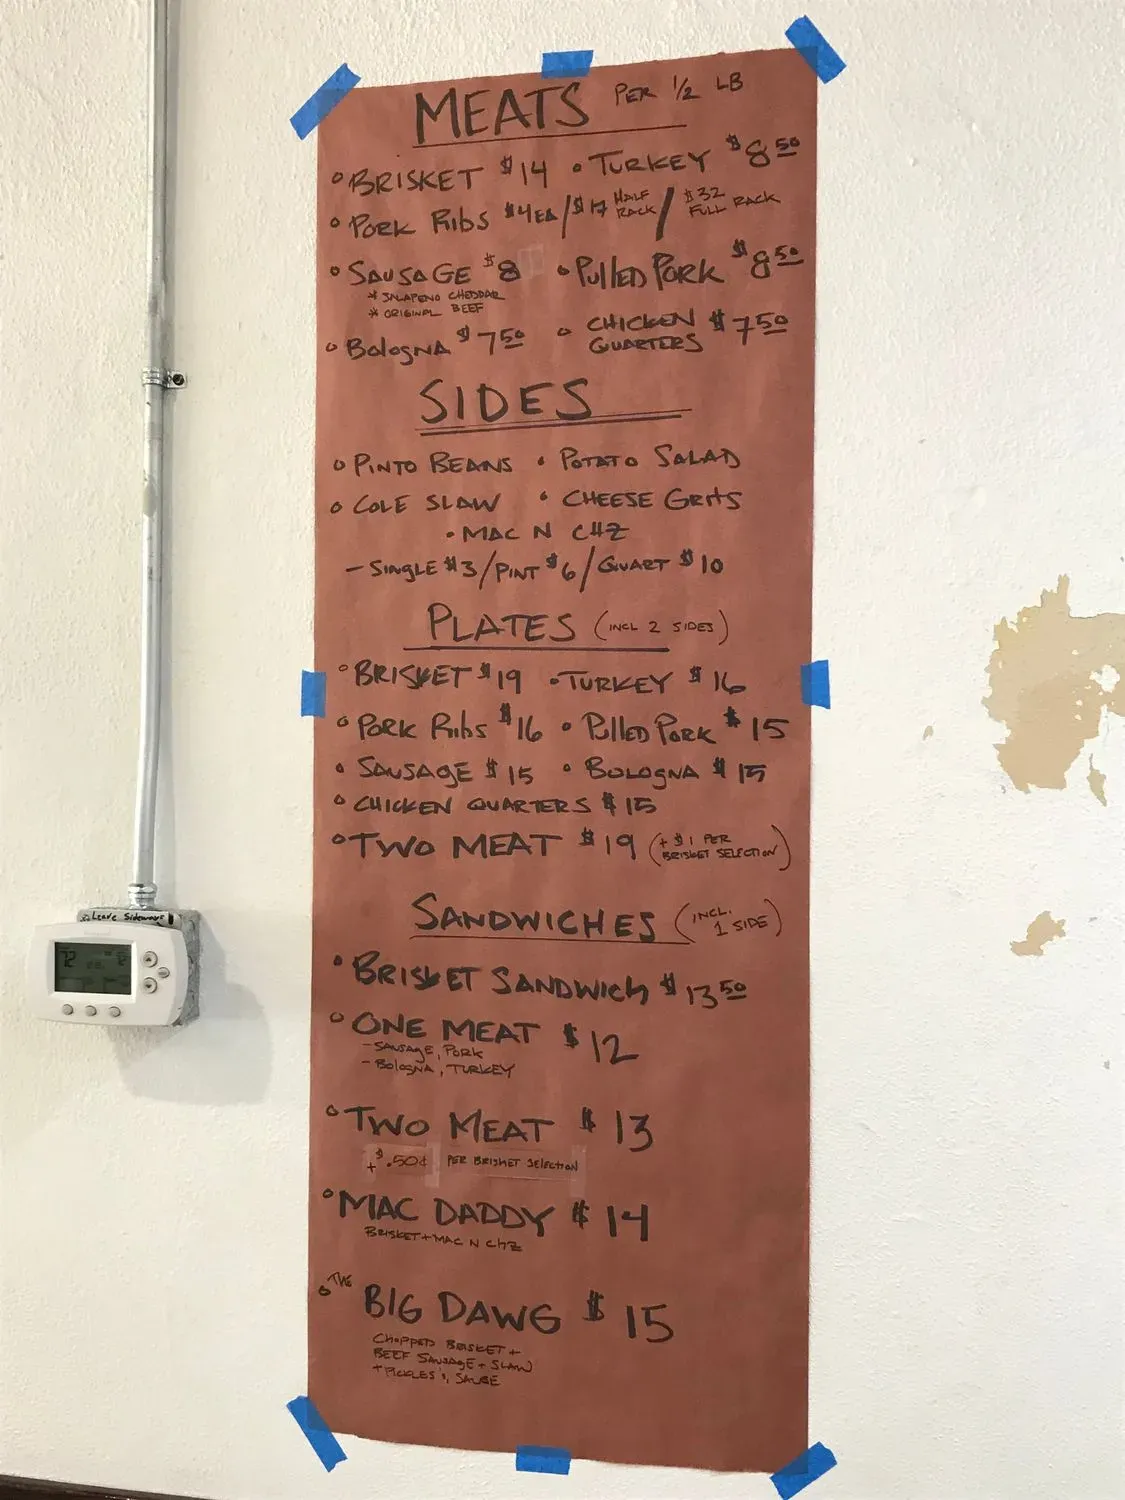 MEATS PER 1/2 LB
• BRISKET $14 • TURKEY $8.50
• PORK RIBS $4EA/$17 HALF RACK/$32 FULL RACK
• SAUSAGE $8 • PULLED PORK $8.50
* JALAPENO CHEDDAR
* ORIGINAL BEEF
• BOLOGNA $7.50 • CHICKEN QUARTERS $7.50
SIDES
• PINTO BEANS • POTATO SALAD
• COLE SLAW • CHEESE GRITS
• MAC N CHZ
- SINGLE $3/PINT $6/QUART $10
PLATES (INCL 2 SIDES)
• BRISKET $19 • TURKEY $16
• PORK RIBS $16 • PULLED PORK $15
• SAUSAGE $15 • BOLOGNA $15
• CHICKEN QUARTERS $15
• TWO MEAT $19 (+ $1 PER BRISKET SELECTION)
SANDWICHES (INCL. 1 SIDE)
• BRISKET SANDWICH $13.50
• ONE MEAT $12
- SAUSAGE, PORK
- BOLOGNA, TURKEY
• TWO MEAT $13
+ $.50¢ PER BRISKET SELECTION
• MAC DADDY $14
BRISKET + MAC N CHZ
• THE BIG DAWG $15
CHOPPED BRISKET +
BEEF SAUSAGE + SLAW
+ PICKLES
Leave Sideways
72